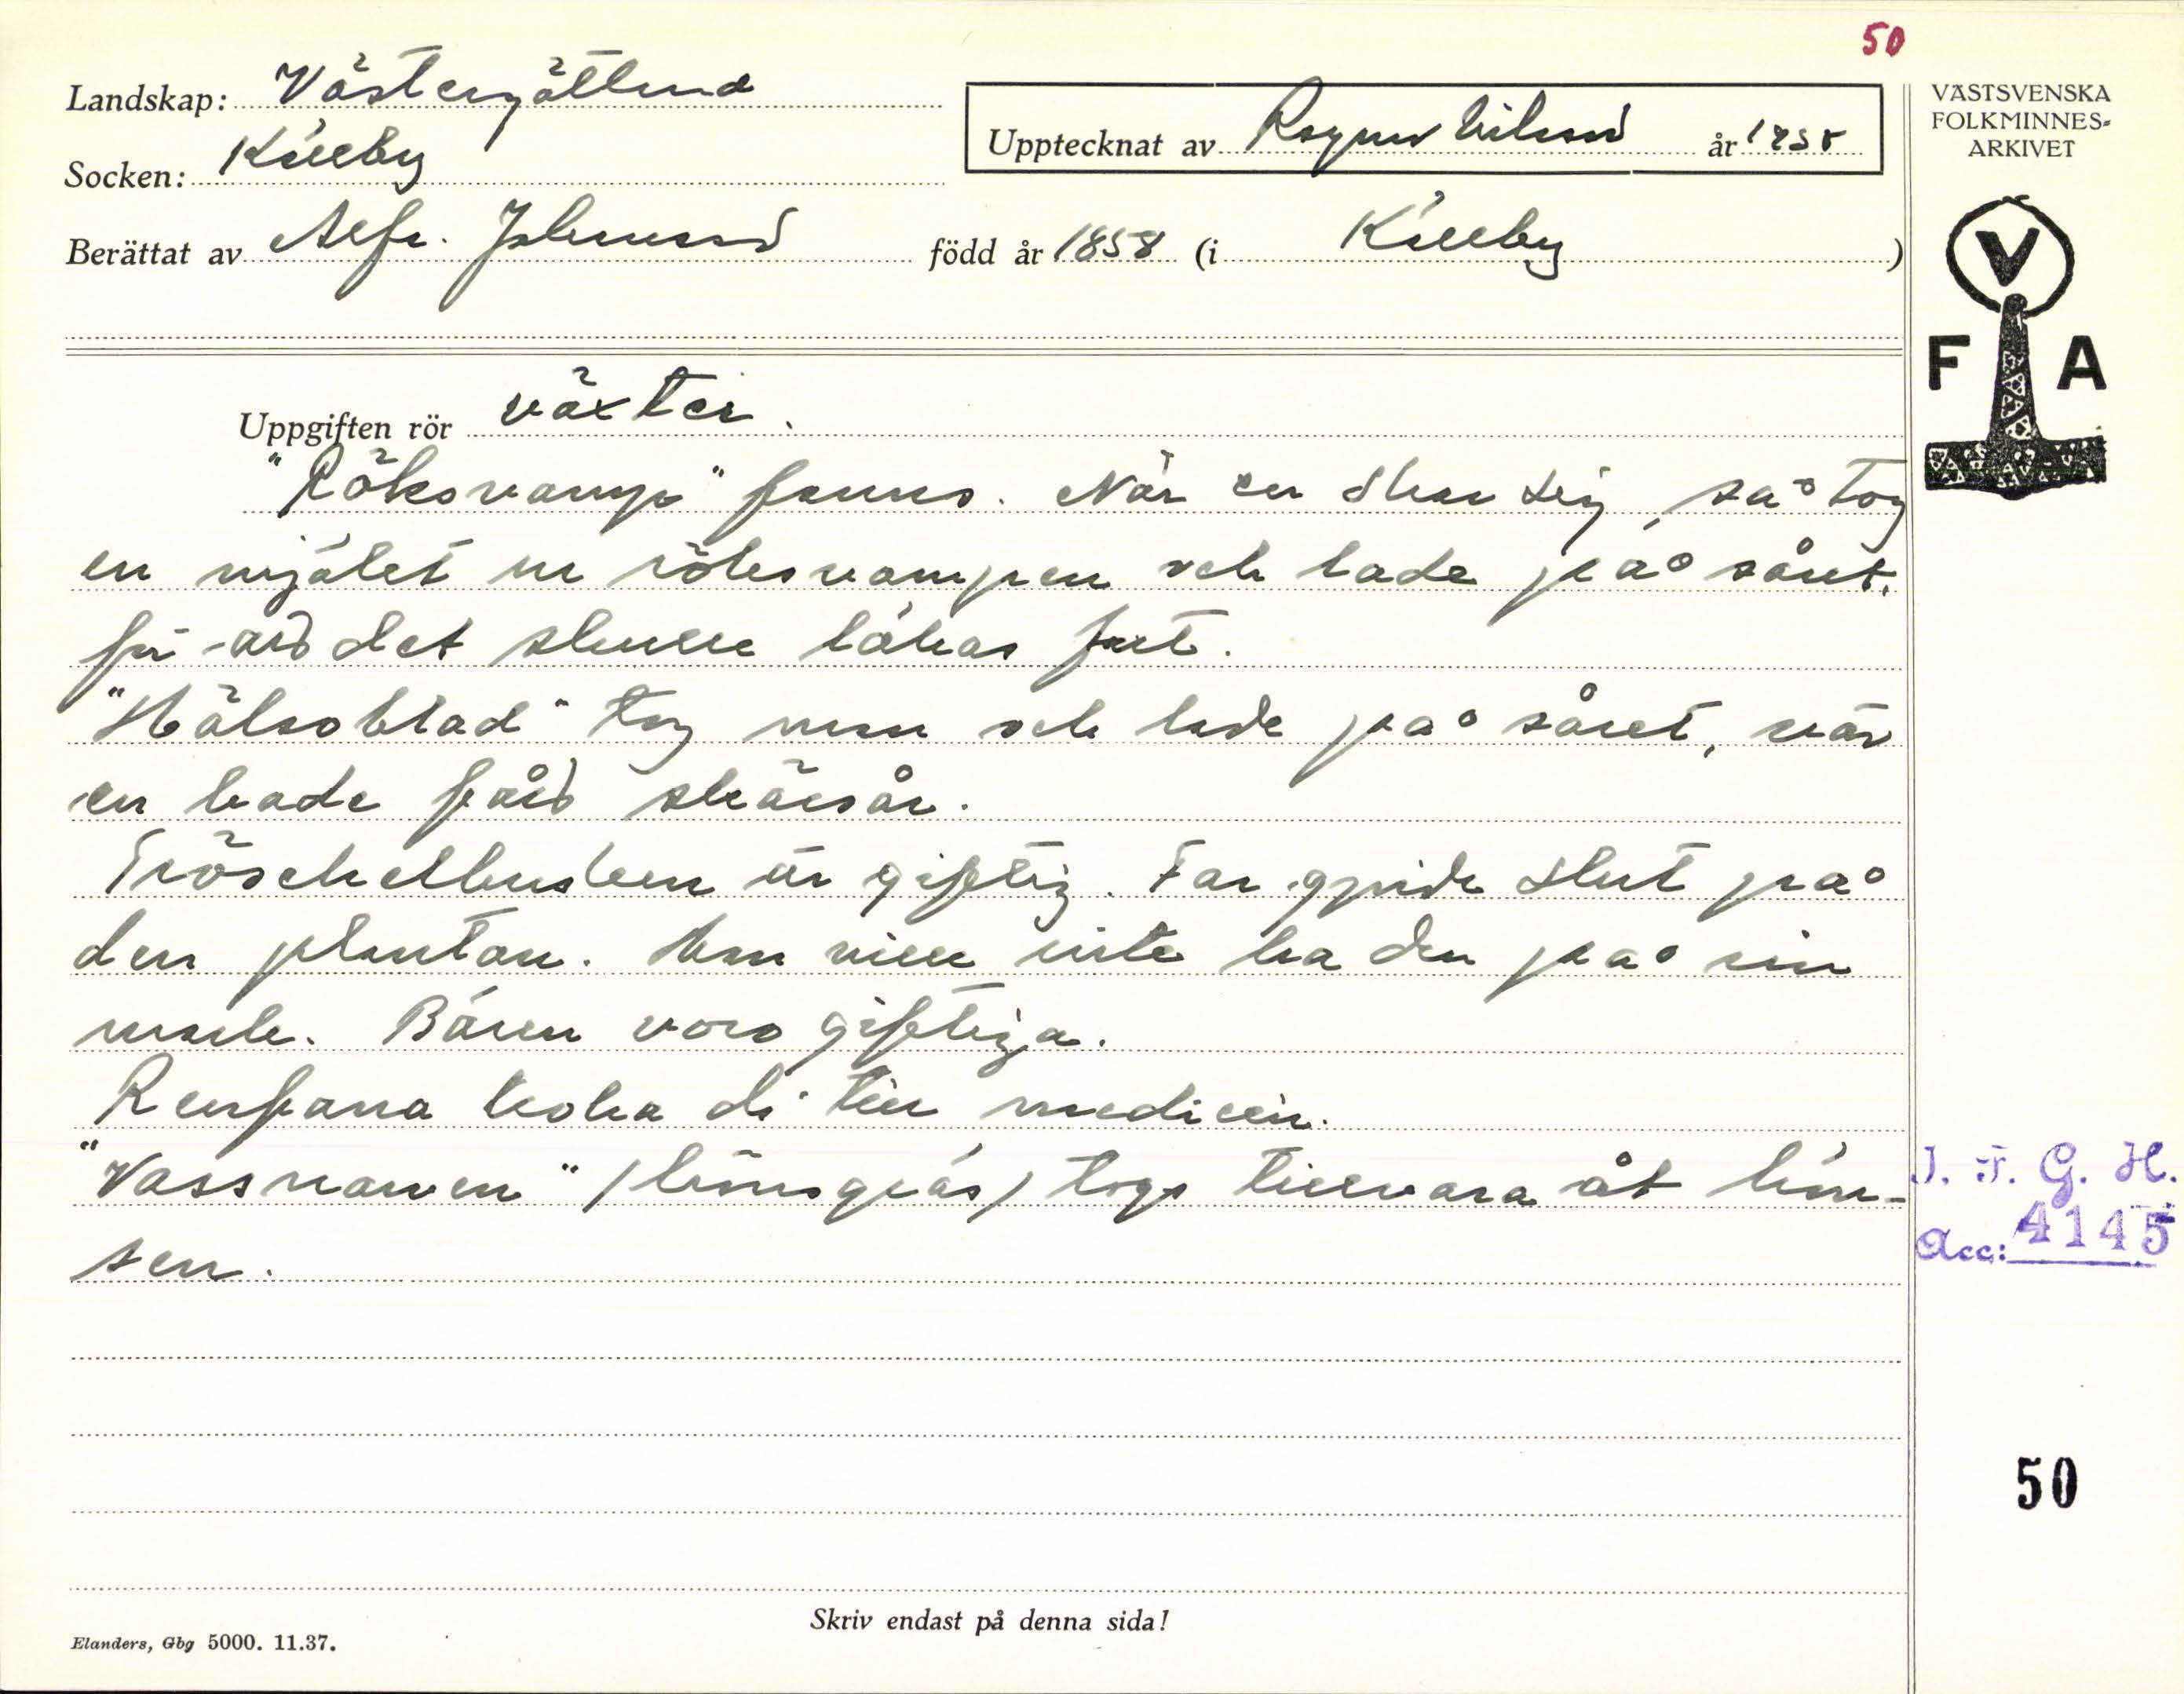 50
Landskap: Västergötland
Socken: Källby
Upptecknat av Ragnar Nilsson år 1938
VÄSTSVENSKA
FOLKMINNES-
ARKIVET
Berättat av Alfr. Johansson född år 1858 (i Källby)
V
F A
Uppgiften rör växter.
"Röksvamp" fanns. När en skar sig, så tog
en mjölet ur röksvampen och lade på såret,
för att det skulle läkas fort.
"Hälsoblad" tog man och lade på såret, när
en hade fått skärsår.
Trösckelbusken är giftig. Far gjorde slut på
den plantan. Han ville inte ha den på sin
mark. Bären voro giftiga.
Renfana koka di till medicin.
"Vassnamen" / hönsgräs / togs tillvara åt hön-
sen.
I. F. G. H.
Acc: 4145
50
Skriv endast på denna sida!
Elanders, Gbg 5000. 11.37.